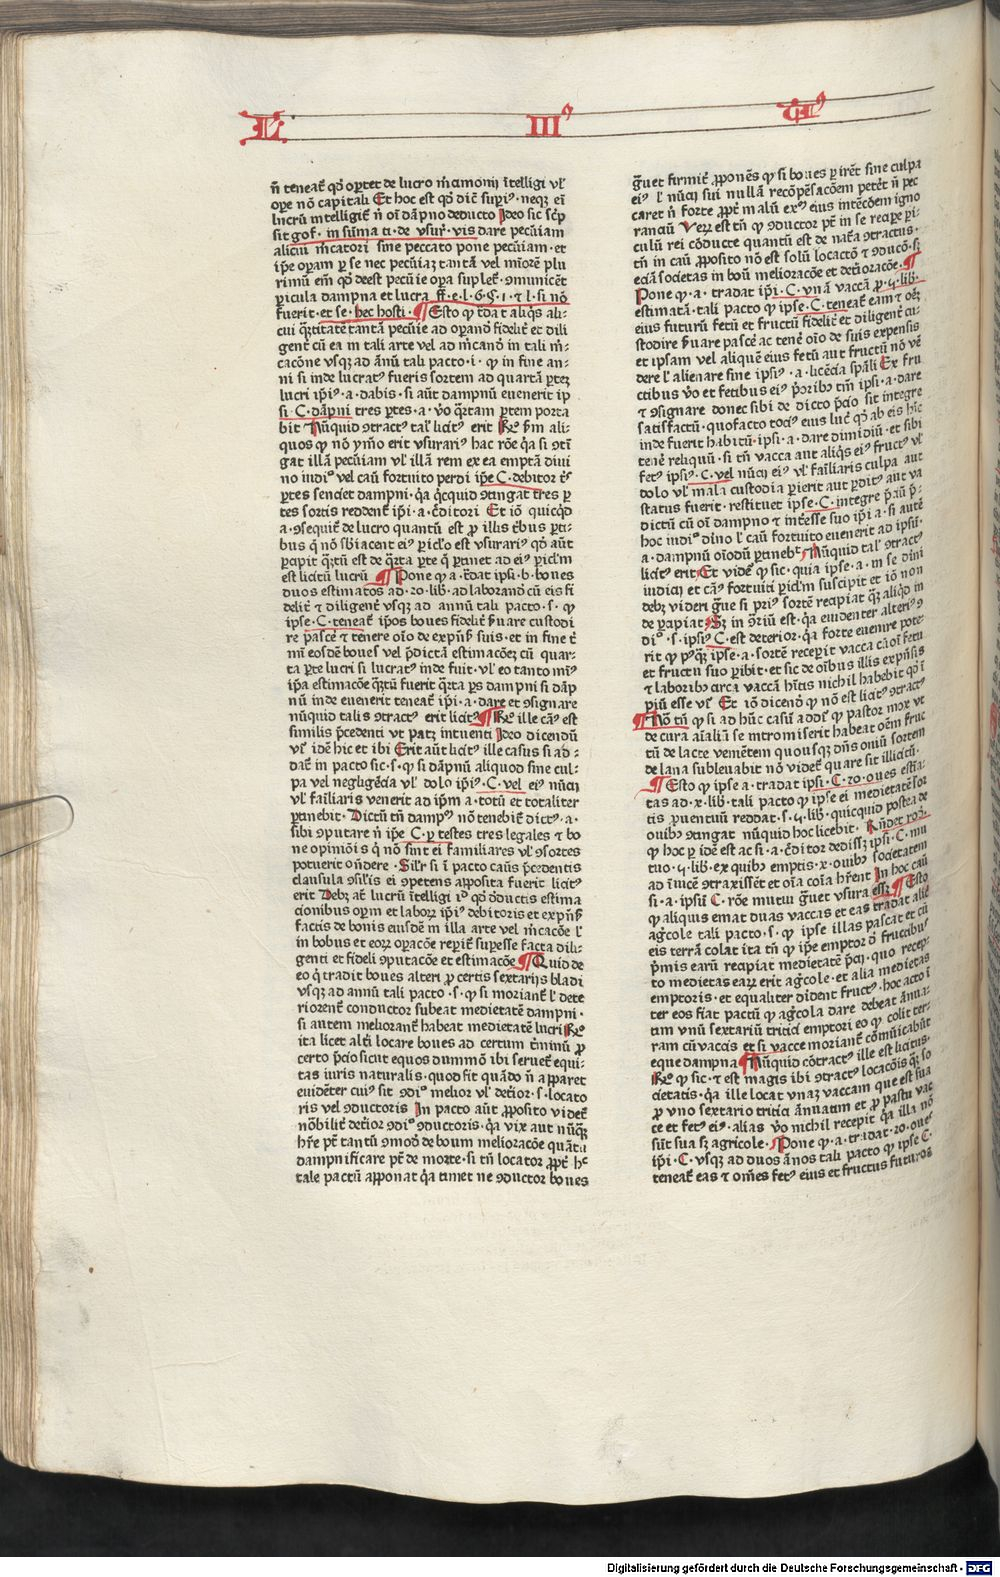 L III⁹ qͥ⁹
n̄ teneat᷑ qď oꝑtet de lucro m̄camonij ītelligi vl᷑
oꝑe nō capitali Et hoc est qď dic̄ᷤ supi᷑⁹· neqꝫ eī
lucrū intelligit᷑ n̄ oī dāpno deducto Ideo sic sc̄p
sit gof· in sūma ti·de vsur᷑· vis dare pecūiam
alicui m̄catori sine peccato pone pecūiam·et
ip̄e oꝑam ꝑ se nec pecūiaꝫ tantā vel mīorē plu
rimū em̄ qď deest pecūie oꝑa suplet᷑·ꝯmunicēt
ꝑicula dampna et lucra ff·e·l·6·ꞔ·1·⁊ l·si nō
fuerit·et se·hec hosti· ¶ Esto ꝙ tͣdat aliqͥs ali-
cui qͣtitatē tantā pecūie ad oꝑandū fidelit᷑ et dili
gent᷑ cū ea in tali arte vel ad m̄candū in tali m̄-
cacōne vsqꝫ ad ānū tali pacto·i· ꝙ in fine an-
ni si inde lucrat⁹ fueris sortem ad quartā ꝑteꝫ
lucri ip̄i⁹·a·dabis·si aūt dampnū euenerit ip
si·C·dāpni tres ꝑtes·a·v̊o qͣrtam ꝑtem porta
bit Nūquid ꝯtract⁹ tal᷑ licit⁹ erit R̄o ẜm ali-
quos ꝙ nō ymo erit vsurari⁹ hac rōe qꝛ si ꝯtī
gat illā pecūiam vl᷑ illā rem ex ea emptā diui
no iudi⁹ vel casū fortuito perdi ip̄e C·debitor tr̄s
ꝑtes senciet dampni·qꝛ qͥcquid ꝯtingat tres ꝑ
tes sortis reddent᷑ ip̄i·a·c̄ditori Et iō quicqͥd
a·ꝯsequit᷑ de lucro quantū est ꝓ illis tͥbus ꝑti-
bus q̄ nō sb̄iacent ei⁹ ꝑiclo est vsurari⁹ qď aūt
ꝑcipit qͣtū est de qͣrta ꝑte q̄ ꝑtinet ad ei⁹ ꝑicl̄m
est licitū lucrū ¶ Pone ꝙ a·tͣdat ipsi·b·boues
duos estimatos ad·20·lib·ad laborandū cū eis fi
delit᷑ ⁊ diligent᷑ vsqꝫ ad annū tali pacto·s·ꝙ
ipse·C·teneat᷑ ip̄os boues fidelit᷑ ẜuare custodi
re pascē ⁊ tenere oīo de exp̄nẜ suis·et in fine t᷑
mī eosdē boues vel p̄dictā estimacōeꝫ cū quar-
ta ꝑte lucri si lucrat⁹ inde fuit·vl᷑ eo tanto mī⁹
ip̄a estimacōe qͣtū fuerit qͣrta ꝑs dampni si dāp
nū inde euenerit teneat᷑ ip̄i·a·dare et ꝯsignare
nūquid talis ꝯtract⁹ erit licit⁹ ¶ R̄o ille cās est
similis p̄cedenti vt patꝫ intuenti Ideo dicendū
vl᷑ idē hic et ibi Erit aūt licit⁹ ille casus si ad-
dat᷑ in pacto sic·s·ꝙ si dāpnū aliquod sine cul-
pa vel negligēcia vl᷑ dolo ip̄i⁹·C·vel ei⁹ nūcij
vl᷑ failiaris venerit ad ip̄m a·totū et totaliter
ꝑtinebit· Dictū tn̄ damp⁹ nō tenebit᷑ dict⁹·a·
sibi ꝯputare n̄ ip̄e C·ꝑ testes tres legales ⁊ bo
ne opiniōis q̄ nō sint ei familiares vl᷑ ꝯsortes
potuerit oñdere· Silr̄ si ī pacto casus p̄cedentis
clausula ꝯsil̄is ei ꝯpetens apposita fuerit licit⁹
erit Debꝫ at᷑ lucrū ītelligi i⁹ qď ꝺductis estima
cionibus oꝑm et laborꝫ ip̄i⁹ debitoris et exp̄nẜ
factis de bonis eiusdē in illa arte vel m̄cacōe l᷑
in bobus et eorꝫ oꝑacōe reꝑit᷑ supesse facta dili-
genti et fideli ꝯputacōe et estimacōe ¶ Quid de
eo q̄ tradit boues alteri ꝓ certis sextarijs bladi
vsqꝫ ad annū tali pacto·s·ꝙ si moriant᷑ l᷑ dete
riorent᷑ conductor subeat medietatē dampni·
si autem meliorant᷑ habeat medietatē lucri R̄o
ita licet alt̄i locare boues ad certum t᷑minū ꝓ
certo p̄cio sicut equos dummō ibi seruet᷑ equi-
tas iuris naturalis·quod fit quādo n̄ apparet
euidēter cui⁹ sit ꝯdi⁹ melior vl᷑ det̄ior·s·locato
ris vel ꝯductoris In pacto aūt ꝓposito videt᷑
nōbilit᷑ det̄ior ꝯdi⁹ ꝯductoris·qꝛ vix aut nūqͣꝫ
hr̄e pt̄ tantū ꝯmodū de boum melioracōe quātū
dampnificare pt̄ de morte·si tn̄ locator ꝓpt᷑ hͨ
tale pactū apponat qꝛ timet ne ꝯductor boues
g̃uet firmit᷑ ꝓponēs ꝙ si boues ꝑirēt sine culpa
ei⁹ l᷑ nūcij sui nullā recōpēsacōem petēt n̄ pec
caret n̄ forte ꝓpt᷑ malū exꝰ eius intēcōem igno
rancū Ver̄ est tn̄ ꝙ ꝯductor pt̄ in se recipe ꝑi-
culū rei cōducte quantū est de nat̄a ꝯtractus·
tn̄ in casū ꝓposito nō est solū locactō ⁊ ꝯducō·sꝫ
eciā societas in boū melioracōe et det̄ioracōe· ¶
Pone ꝙ·a·tradat ip̄i·C·vnā vaccā ꝓ·5·lib·
estimatā·tali pacto ꝙ ipse·C·teneat᷑ eam ⁊ oēꝫ
eius futurū fetū et fructū fidelit᷑ et diligent᷑ cu-
stodire ẜuare pascē ac tenē oīo de suis expensis
et ipsam vel aliquem eius fetū aut fructū nō vē
dere l᷑ alienare sine ipsi⁹·a·licēcia spāli Ex fru
ctibus v̊o et fetibus ei⁹ p̄orib⁹ tm̄ ipsi·a·dare
⁊ ꝯsignare donec sibi de dicto p̄cio sit integre
satisfactū·quo facto toci⁹ eius luc᷑ qď ab eis hīc
inde fuerit habitū·ipsi·a·dare dimidiū·et sibi
tenē reliquū·si tn̄ vacca aut aliqͥs ei⁹ fruct⁹ vl᷑
fet⁹ ipsi⁹·C·vel nūcij ei⁹ vl᷑ failiaris culpa aut
dolo vl᷑ mala custodia ꝑierit aut ꝑdit⁹ aut va
status fuerit·restituet ipse·C·integre p̄ciū p̄-
dictū cū oī dampno ⁊ int̄esse suo ip̄i a·si autē
hoc iudi⁹ dīno l᷑ casū fortuito euenerit ad ipsū·
a·dampnū oīodū ꝑtineb᷑t· Nūquid tal᷑ ꝯtract⁹
licit⁹ erit Et videt᷑ ꝙ sic·quia ipse·a·in se diui
iudicij et casꝰ fortuiti ꝑicl̄m suscipit et iō non
debꝫ videri g̃ue si pri⁹ sortē recipiat qͣꝫ aliqͥd in
de ꝑcipiat Sꝫ in ꝯr̄iū est·qꝛ euidenter alteri⁹ ꝯ
di⁹·s·ipsi⁹ C·est deterior·qꝛ forte euenire pote-
rit ꝙ p⁹qͣꝫ ipse·a·sortē receꝑit vacca cū oī fetu
et fructu suo ꝑibit·et sic de oībus illis exp̄nsis
⁊ laborib⁹ circa vaccā hītis nichil habebit qď ī
piū esse vl᷑ Et iō dicendū ꝙ nō est licit⁹ ꝯtract⁹
¶ Nō tn̄ ꝙ si ad hūc casū addit᷑ ꝙ pastor mox vt
de cura aīaliū se intromiserit habeat oēm fruc
tū de lacte veniētem quousqꝫ dn̄s oniū sortem
de lana subleuabit nō videt᷑ quare sit illicitū·
¶ Esto ꝙ ipse a·tradat ipsi·C·20·oues estīa-
tas ad·x·lib·tali pacto ꝙ ipse ei medietatē sor
tis ꝓuentuū reddat·s·5·lib·quicquid postea de
ouib⁹ ꝯtingat nūquid hoc licebit· Rn̄det rod̄·
ꝙ hoc ꝑ idē est ac si·a·c̄ditor dedissꝫ ipsi·C·mu
tuo·5·lib·ex quib⁹ emptis·x·ouib⁹ societatem
ad īuicē ꝯtraxissēt et oīa coīa hr̄ent In hoc casū
si·a·ipsū C·rōe mutui g̃uet vsura essꝫ ¶ Esto
ꝙ aliquis emat duas vaccas et eas tradat alic᷑
ag̃cole tali pacto·s·ꝙ ipse illas pascat et cū
eis terrā colat ita tn̄ ꝙ ip̄e emptor ď fructibus
p̄mis earū recipiat medietatē p̄cij·quo recep-
to medietas earꝫ erit ag̃cole·et alia medietas
emptoris·et equaliter dīdent fruct⁹·hoc acto ī
ter eos fiat pactū ꝙ ag̃cola dare debeat ānua-
tim vnū sextariū tritici emptori eo ꝙ colit ter-
ram cū vaccis et si vacce moriant᷑ cōmūicabūt
eque dampna ¶ Nūquid cōtract⁹ ille est licitus·
R̄o ꝙ sic·⁊ est magis ibi ꝯtract⁹ locacōis qͣꝫ so
cietatis·qꝛ ille locat vnaꝫ vaccam que est sua
ꝓ vno sextario tritici ānuatim et ꝓ pastu vac
ce et fet⁹ ei⁹·alias v̊o nichil recepit qꝛ illa nō
sūt sua sꝫ agricole· Pone ꝙ·a·tradat·20·oues
ip̄i·C·vsqꝫ ad duos ānos tali pacto ꝙ ipse C·
teneat᷑ eas ⁊ om̄es fet⁹ eius et fructus futuros
Digitalisierung gefördert durch die Deutsche Forschungsgemeinschaft - DFG